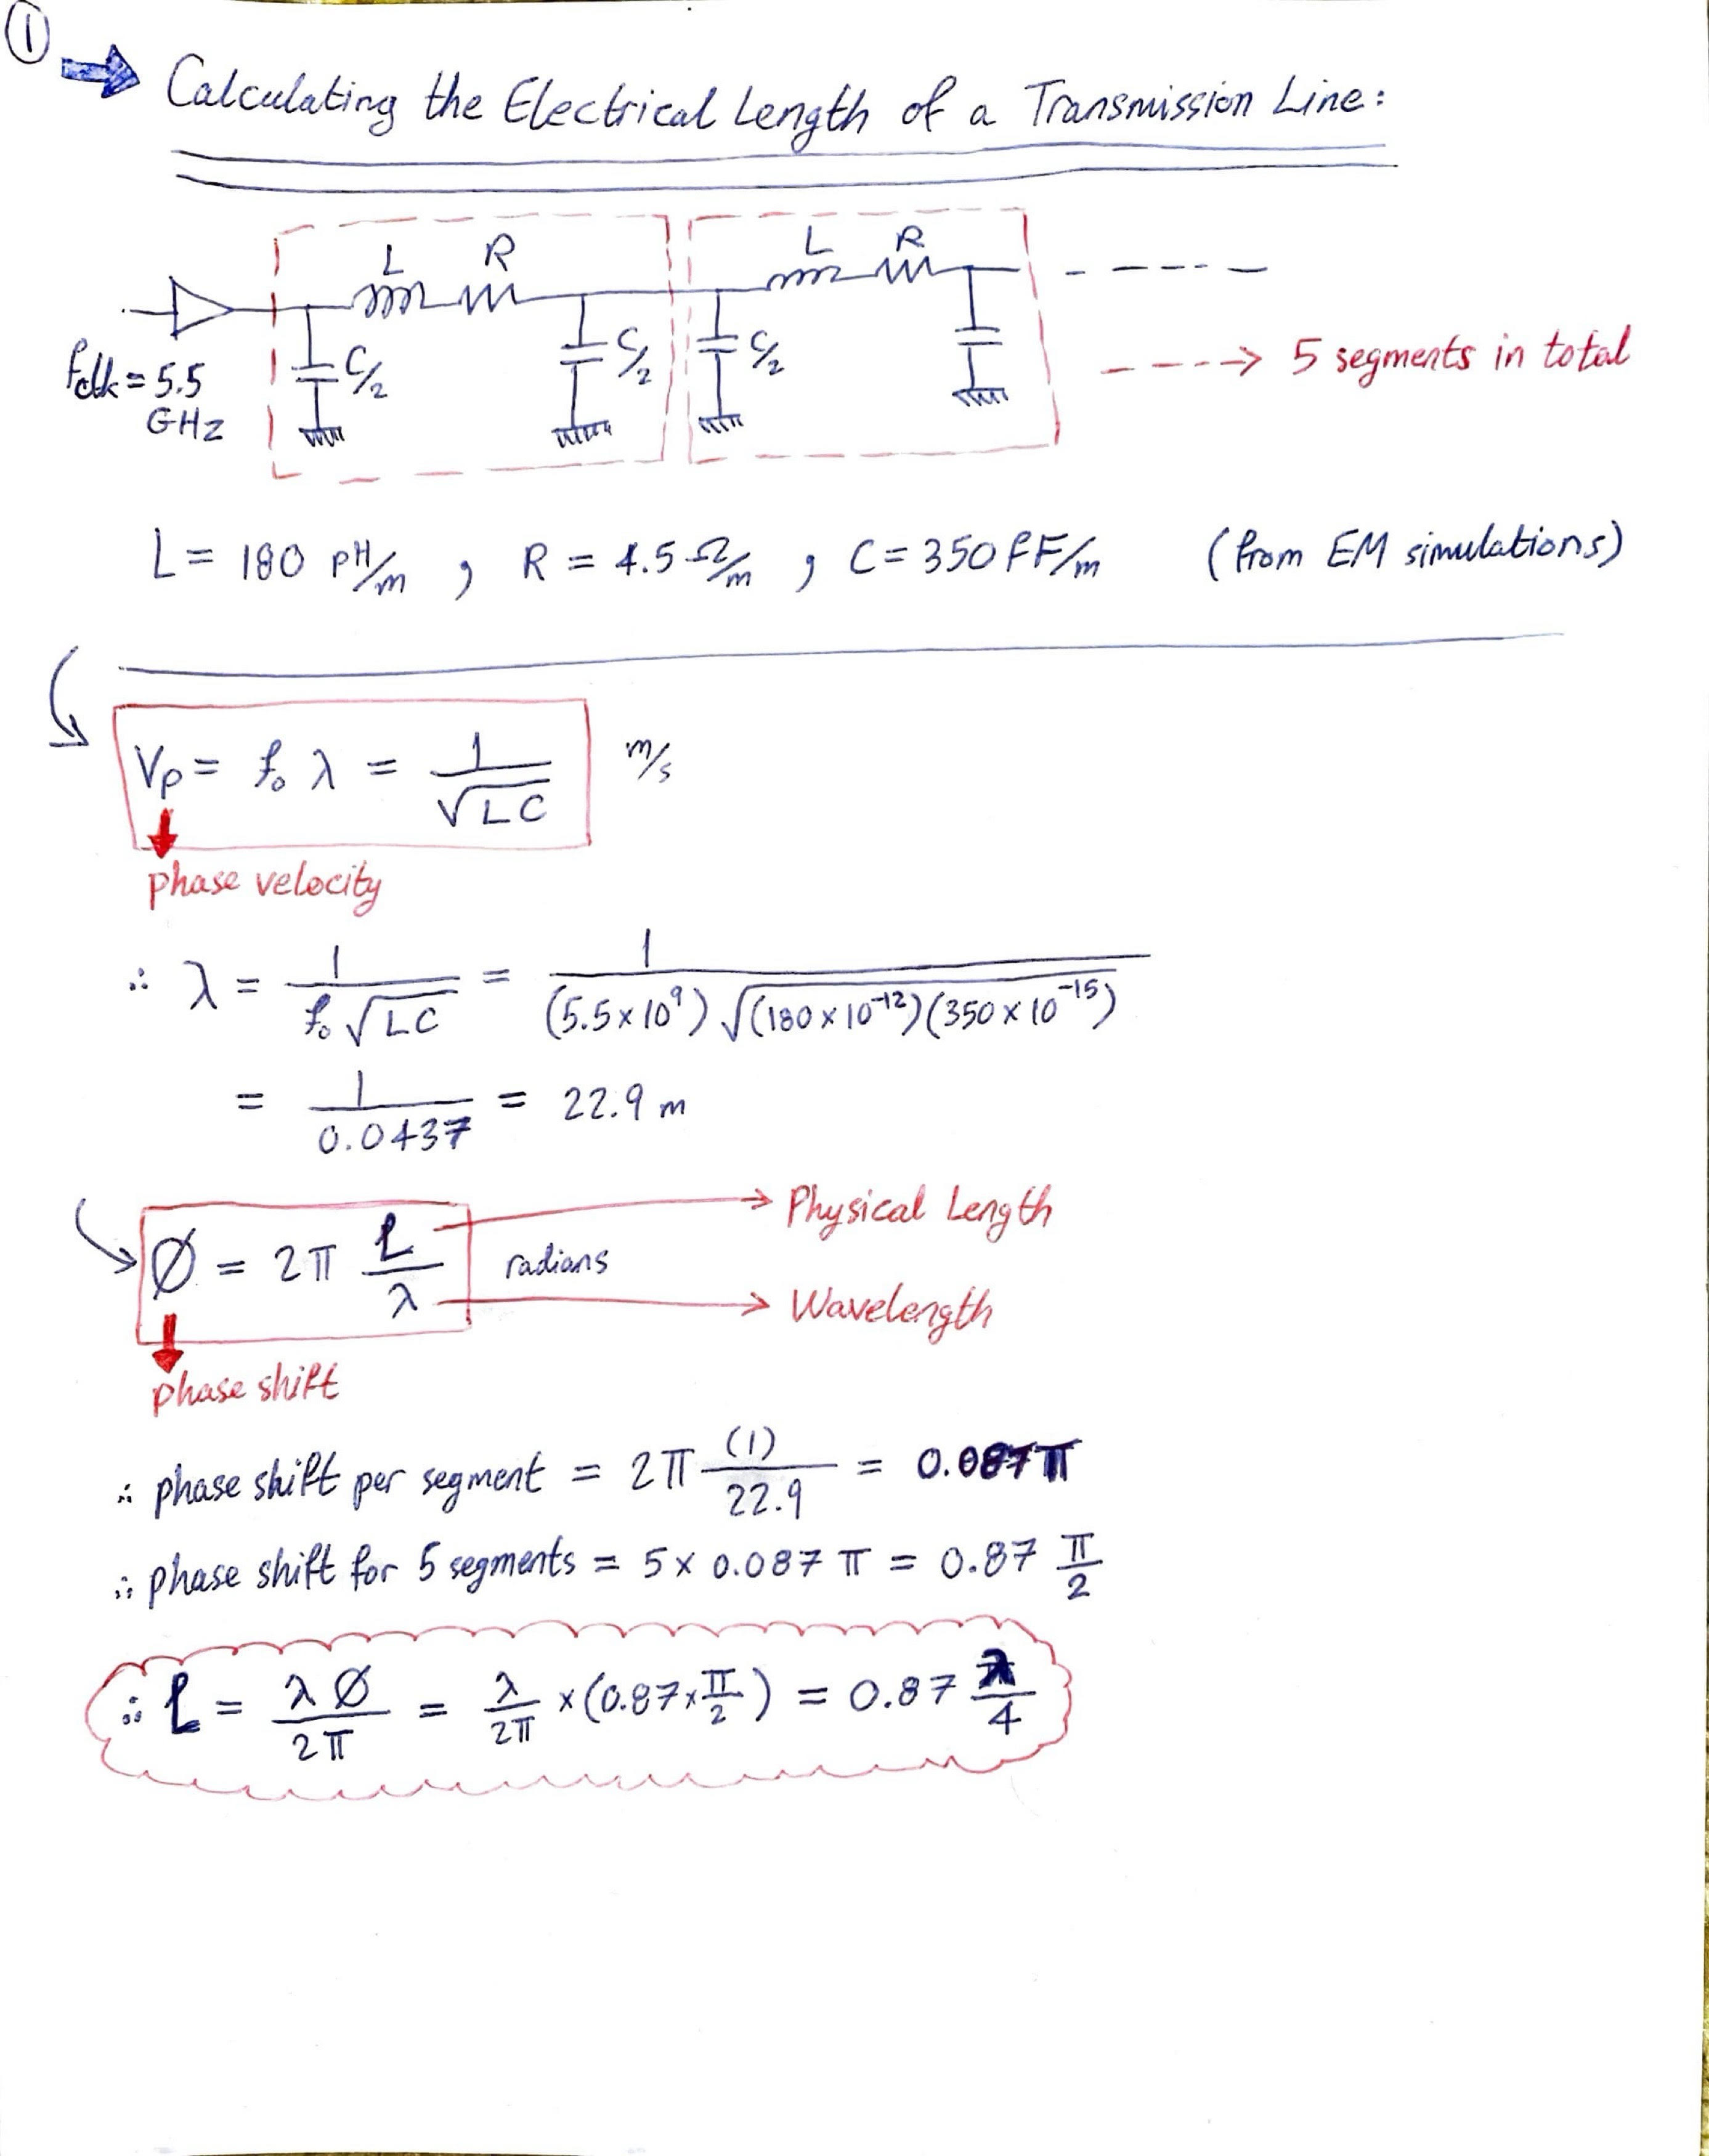 ①
Calculating the Electrical Length of a Transmission Line:
L R L R
C/2 C/2 C/2
fclk = 5.5 GHz
5 segments in total
L = 180 pH/m , R = 4.5 Ω/m , C = 350 fF/m (from EM simulations)
Vp = f₀ λ = 1/√LC m/s
phase velocity
∴ λ = 1/(f₀ √LC) = 1/((5.5 × 10⁹) √(180 × 10⁻¹²)(350 × 10⁻¹⁵))
= 1/0.0437 = 22.9 m
Ø = 2π ℓ/λ radians
Physical Length
Wavelength
phase shift
∴ phase shift per segment = 2π (1)/22.9 = 0.087π
∴ phase shift for 5 segments = 5 × 0.087 π = 0.87 π/2
∴ ℓ = λØ/2π = λ/2π × (0.87 × π/2) = 0.87 λ/4